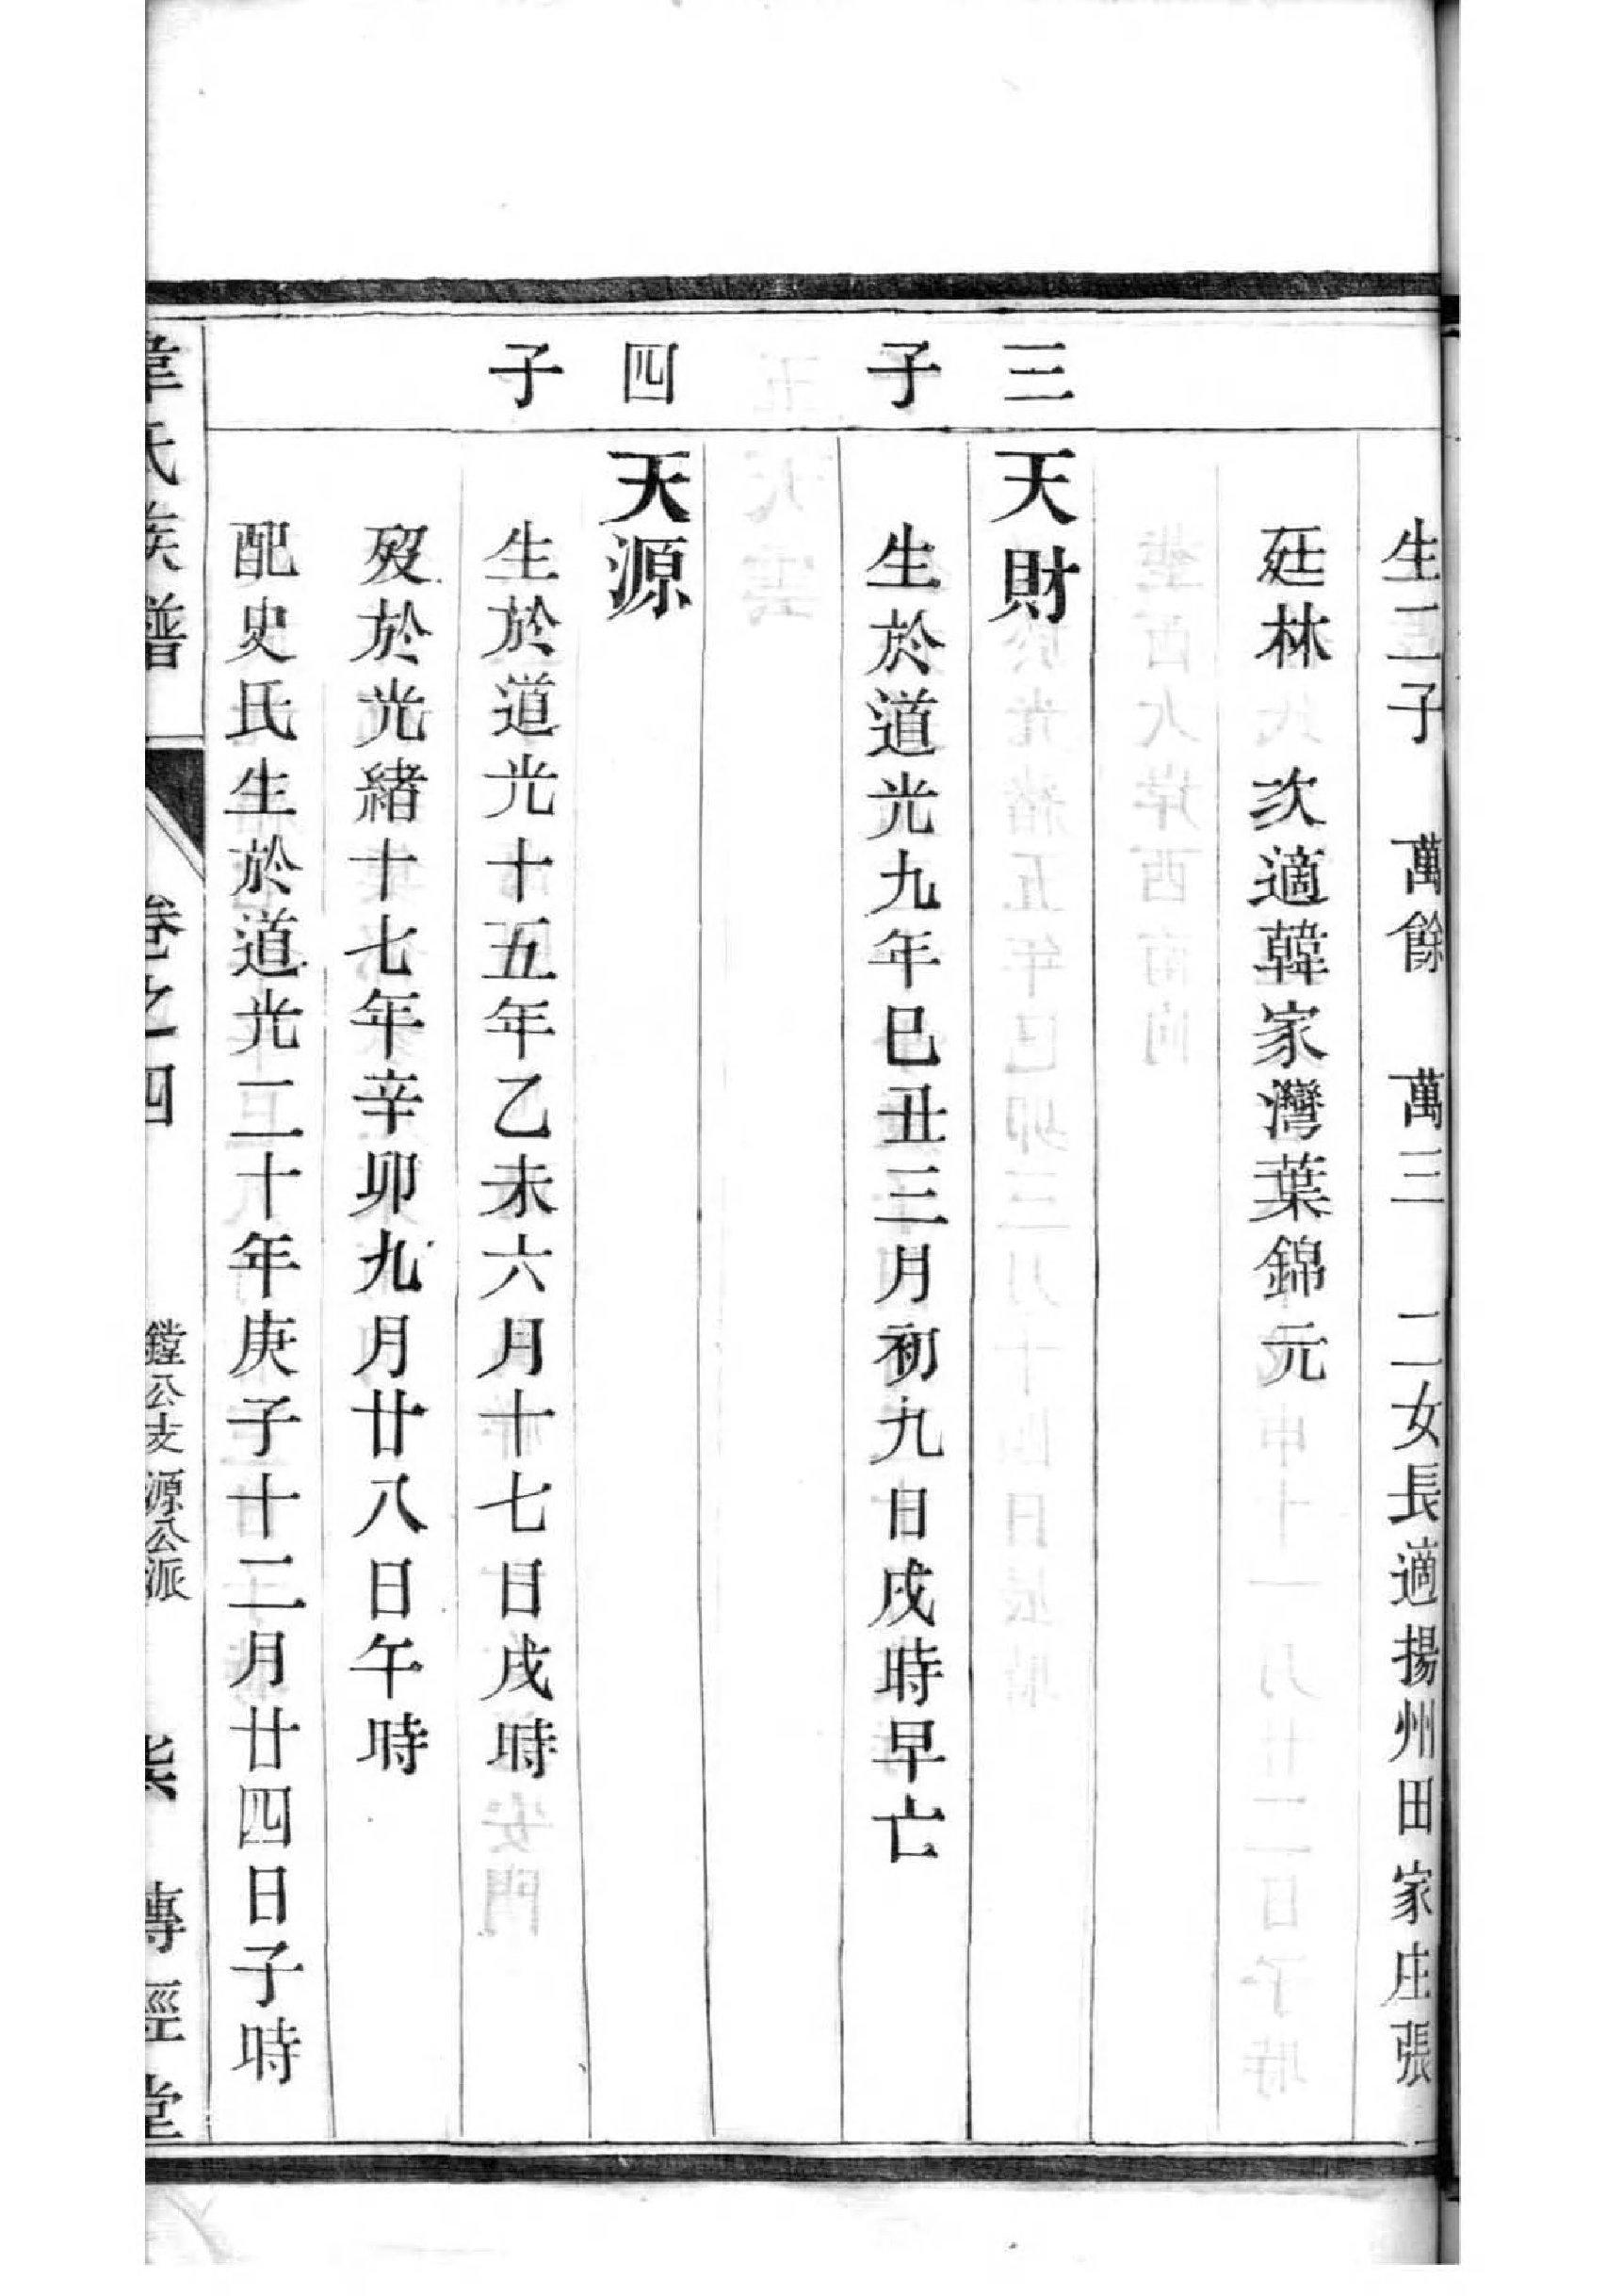 生二子　萬餘　萬三　二女長適揚州田家庄張
廷林　次適韓家灣葉錦元
三子
天財
生於道光九年巳丑三月初九日戌時早亡
四子
天源
生於道光十五年乙未六月十七日戌時
歿於光緒十七年辛卯九月廿八日午時
配史氏生於道光二十年庚子十二月廿四日子時
韋氏族譜　卷之四　鏜公支　源公派　傳經堂